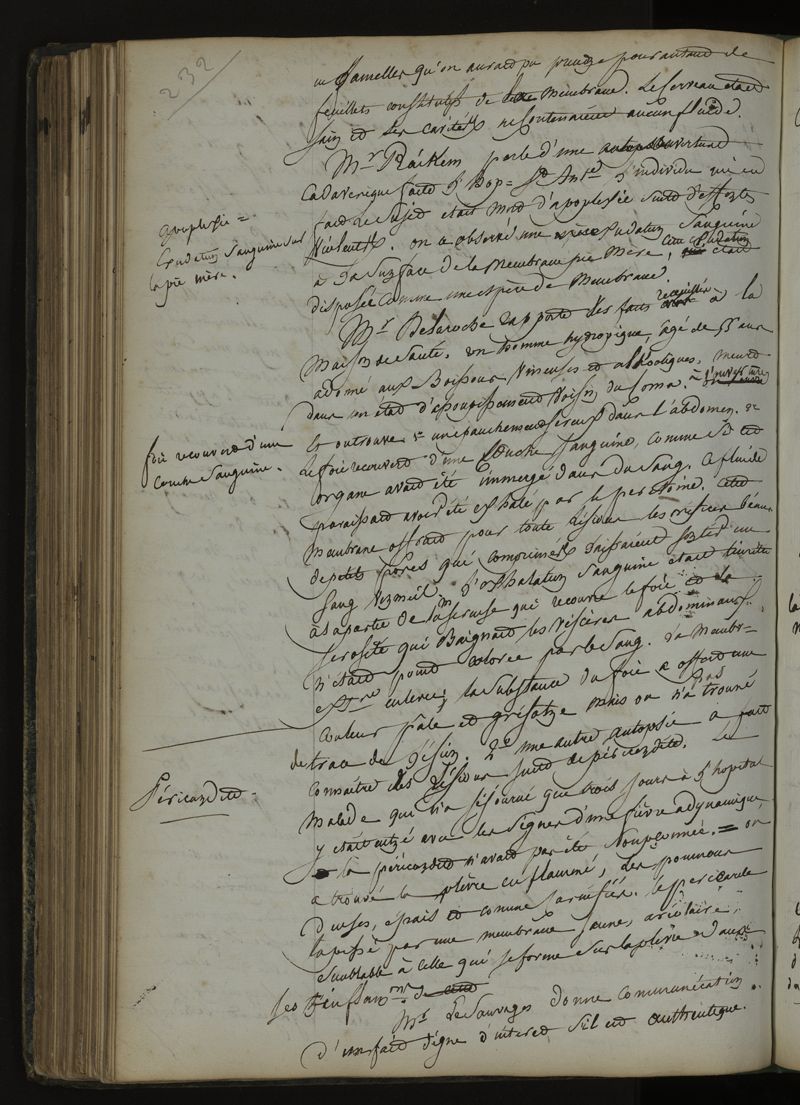 232
en lamelles qu'on aurait pu prendre pour autant de
feuillets constitutifs de membrane. Le cerveau etait
sain et les cavités ne contenaient aucun fluide.
Mr Raikem parle d'une ouverture
cadaverique faite à l'hop= St Ant. l'individu qui en
fait le sujet etait mort d'apoplexie suite d'efforts
violents. on a observé une exudation sanguine
à la surface de la membrane pie mère, cette exudation etait
disposée comme une espèce de membrane
apoplexie =
Exudation sanguine sur
la pie mère.
Mr Delaroche rapporte des faits recueillis à la
maison de santé. un homme hydropique, agé de 55 ans
adonné aux boissons vineuses et alkooliques, meurt
dans un état d'assoupissement voisin du coma. à l'ouverture
et on trouve 1° un epanchement sereux dans l'abdomen. 2°
le foie recouvert d'une couche sanguine, comme si cet
organe avait été immergé dans du sang. ce fluide
paraissait avoir été exhalé par le peritoine. cette
membrane offrait pour toute lesion les orifices béans
de petits pores qui comprimés laissaient sortir un
sang vermeil. l'exhalation sanguine etait limitée
à la partie de la sereuse qui recouvre le foie et la
serosité qui baignait les viscères abdominaux
n'etait point colorée par le sang. la membr=
foie recouvert d'une
couche sanguine.
la substance du foie offrait une
couleur pâle et grisatre mais on n'a pas trouvé
de trace de lésion. 2° une autre autopsie a fait
connaître des lésions suite de péricardite. Le
malade qui n'a séjourné que trois jours à l'hopital
y était entré avec les signes d'une fièvre adynamique
la péricardite n'avait pas été soupçonnée. = on
a trouvé la plèvre enflammée, les poumons
durs, epais et comme carnifiés. le pericarde
tapissé par une membrane jaune, aréolaire,
semblable à celle qui se forme sur la plèvre dans
les inflamm.
Péricardite =
Mr LeSauvages donne communication
d'un fait digne d'interet s'il est authentique.